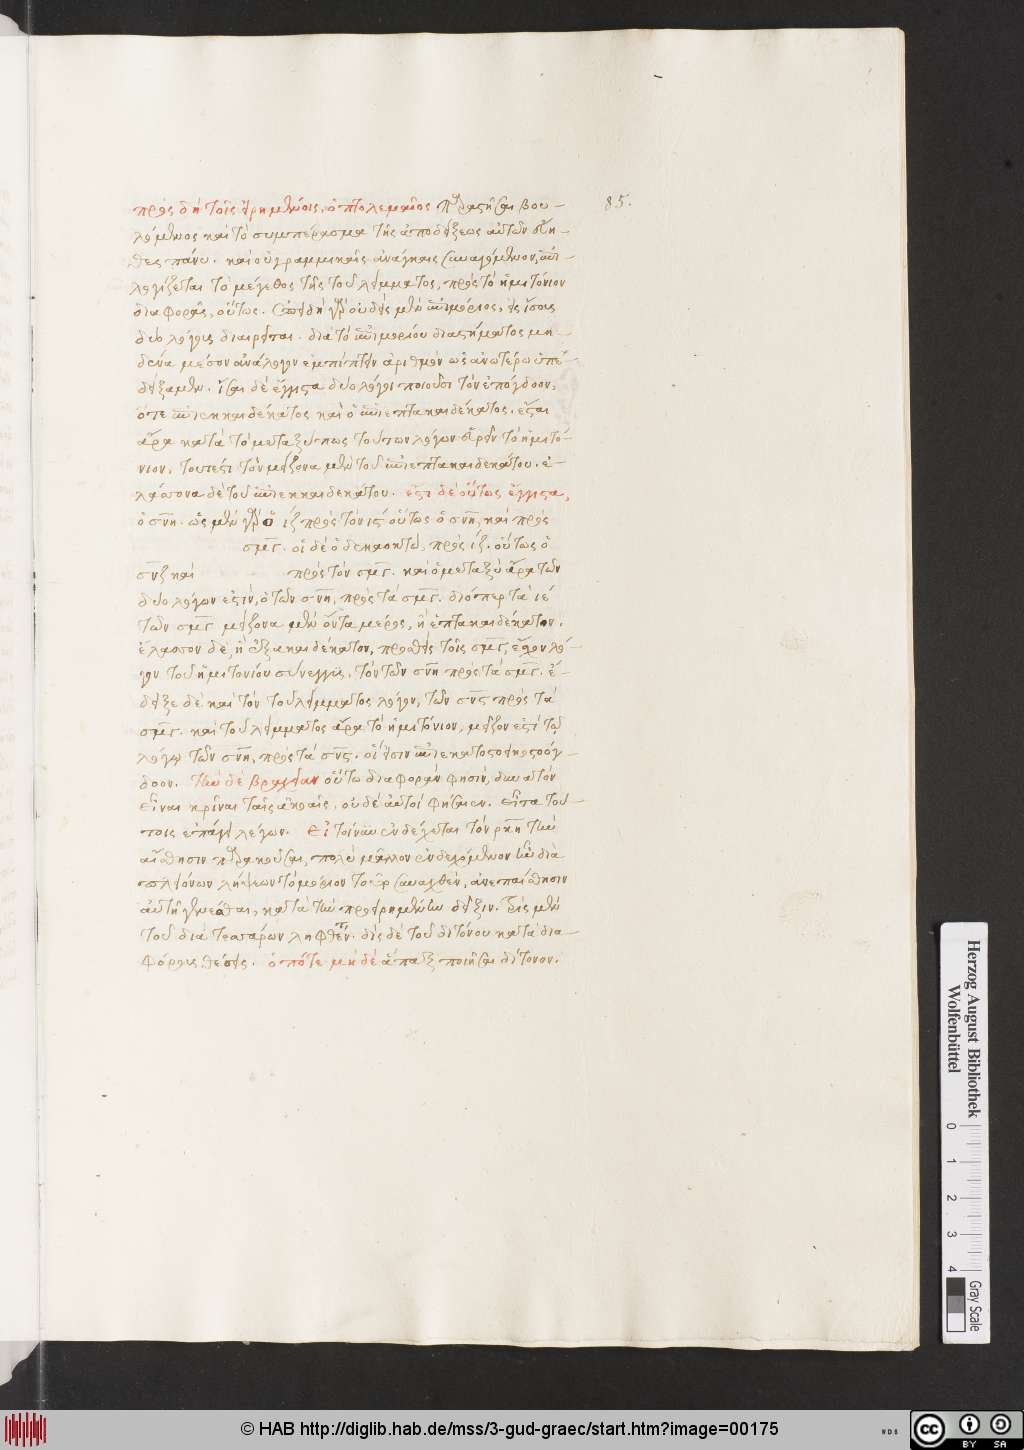 πρὸς δὴ τοῖς εἰρημένοις, ὁ πτολεμαῖος παραστῆσαι βου- 85.
λόμενος καὶ τὸ συμπέρασμα τῆς ἀποδείξεως αὐτῶν εὔη-
θες πάνυ. καὶ οὐ γραμμικαῖς ἀνάγκαις συναγόμενον, ἐπι-
λογίζεται τὸ μέγεθος τῆς τοῦ λείμματος, πρὸς τὸ ἡμιτόνιον
διαφορᾶς, οὕτως. ἐπειδὴ γὰρ οὐδεὶς μὲν ἐπιμόριος, εἰς ἴσους
δύο λόγους διαιρεῖται. διὰ τὸ ἐπιμορίου διαστήματος μη-
δένα μέσον ἀνάλογον ἐμπίπτειν ἀριθμὸν ὡς ἀνωτέρω ἐπε-
δείξαμεν. ἴσαι δὲ ἔγγιστα δύο λόγοι ποιοῦσι τὸν ἐπόγδοον,
ὅτε ἐπιεκκαιδέκατος καὶ ὁ ἐπιεπτακαιδέκατος. ἔσται
ἄρα κατὰ τὸ μεταξύ πως τούτων λόγων εὑρεῖν τὸ ἡμιτό-
νιον, τουτέστι τὸν μείζονα μὲν τοῦ ἐπιεπτακαιδεκάτου. ἐ-
λάσσονα δὲ τοῦ ἐπιεκκαιδεκάτου. ἔστι δὲ οὕτως ἔγγιστα,
ὁ σνη. ὡς μὲν γὰρ ὁ ιζ πρὸς τὸν ις οὕτως ὁ σνη, καὶ πρὸς
σμγ. οἱ δὲ ὁ δεκαοκτώ, πρὸς ιζ. οὕτως ὁ
σνζ καὶ πρὸς τὸν σμγ. καὶ ὁ μεταξὺ ἄρα τῶν
δύο λόγων ἐστὶν, ὁ τῶν σνη, πρὸς τὰ σμγ. διόσπερ τὰ ιε
τῶν σμγ μείζονα μὲν ὄντα μέρος, ἢ ἑπτακαιδέκατον.
ἔλασσον δὲ, ἢ ἑξακαιδέκατον, προσθεὶς τοῖς σμγ, ἔσχον λό-
γον τοῦ ἡμιτονίου σύνεγγυς, τὸν τῶν σνη πρὸς τὰ σμγ. ἔ-
δειξε δὲ καὶ τὸν τοῦ λείμματος λόγον, τῶν σνς πρὸς τὰ
σμγ. καὶ τοῦ λείμματος ἄρα τὸ ἡμιτόνιον, μεῖζον ἐστὶ τῷ
λόγῳ τῶν σνη, πρὸς τὰ σνς. οἵ εἰσιν ἐπιεκατοστοεικοστόγ-
δοον. τὴν δὲ βραχεῖαν οὕτω διαφορὰν φησὶν, δυνατὸν
εἶναι κρῖναι ταῖς ἀκοαῖς, οὐδὲ αὐτοὶ φήσαιεν. εἶτα τού-
τοις ἐπάγει λέγων. Εἰ τοίνυν ἐνδέχεται τὸν ρκη τὴν
αἴσθησιν παρακοῦσαι, πολὺ μᾶλλον ἐνδεχόμενον ἦν διὰ
πλειόνων λήψεων τὸ μόριον τοῦτο συναχθὲν, ἀνεπαίσθητον
αὐτῇ γενέσθαι, κατὰ τὴν προειρημένην δεῖξιν. τρὶς μὲν
τοῦ διὰ τεσσάρων ληφθέν. δὶς δὲ τοῦ διτόνου κατὰ δια-
φόρους θέσεις. ὁπότε μηδὲ ἅπαξ ποιῆσαι δίτονον.
Herzog August Bibliothek
Wolfenbüttel
0 1 2 3 4
Gray Scale
© HAB http://diglib.hab.de/mss/3-gud-graec/start.htm?image=00175
WDB
cc BY SA